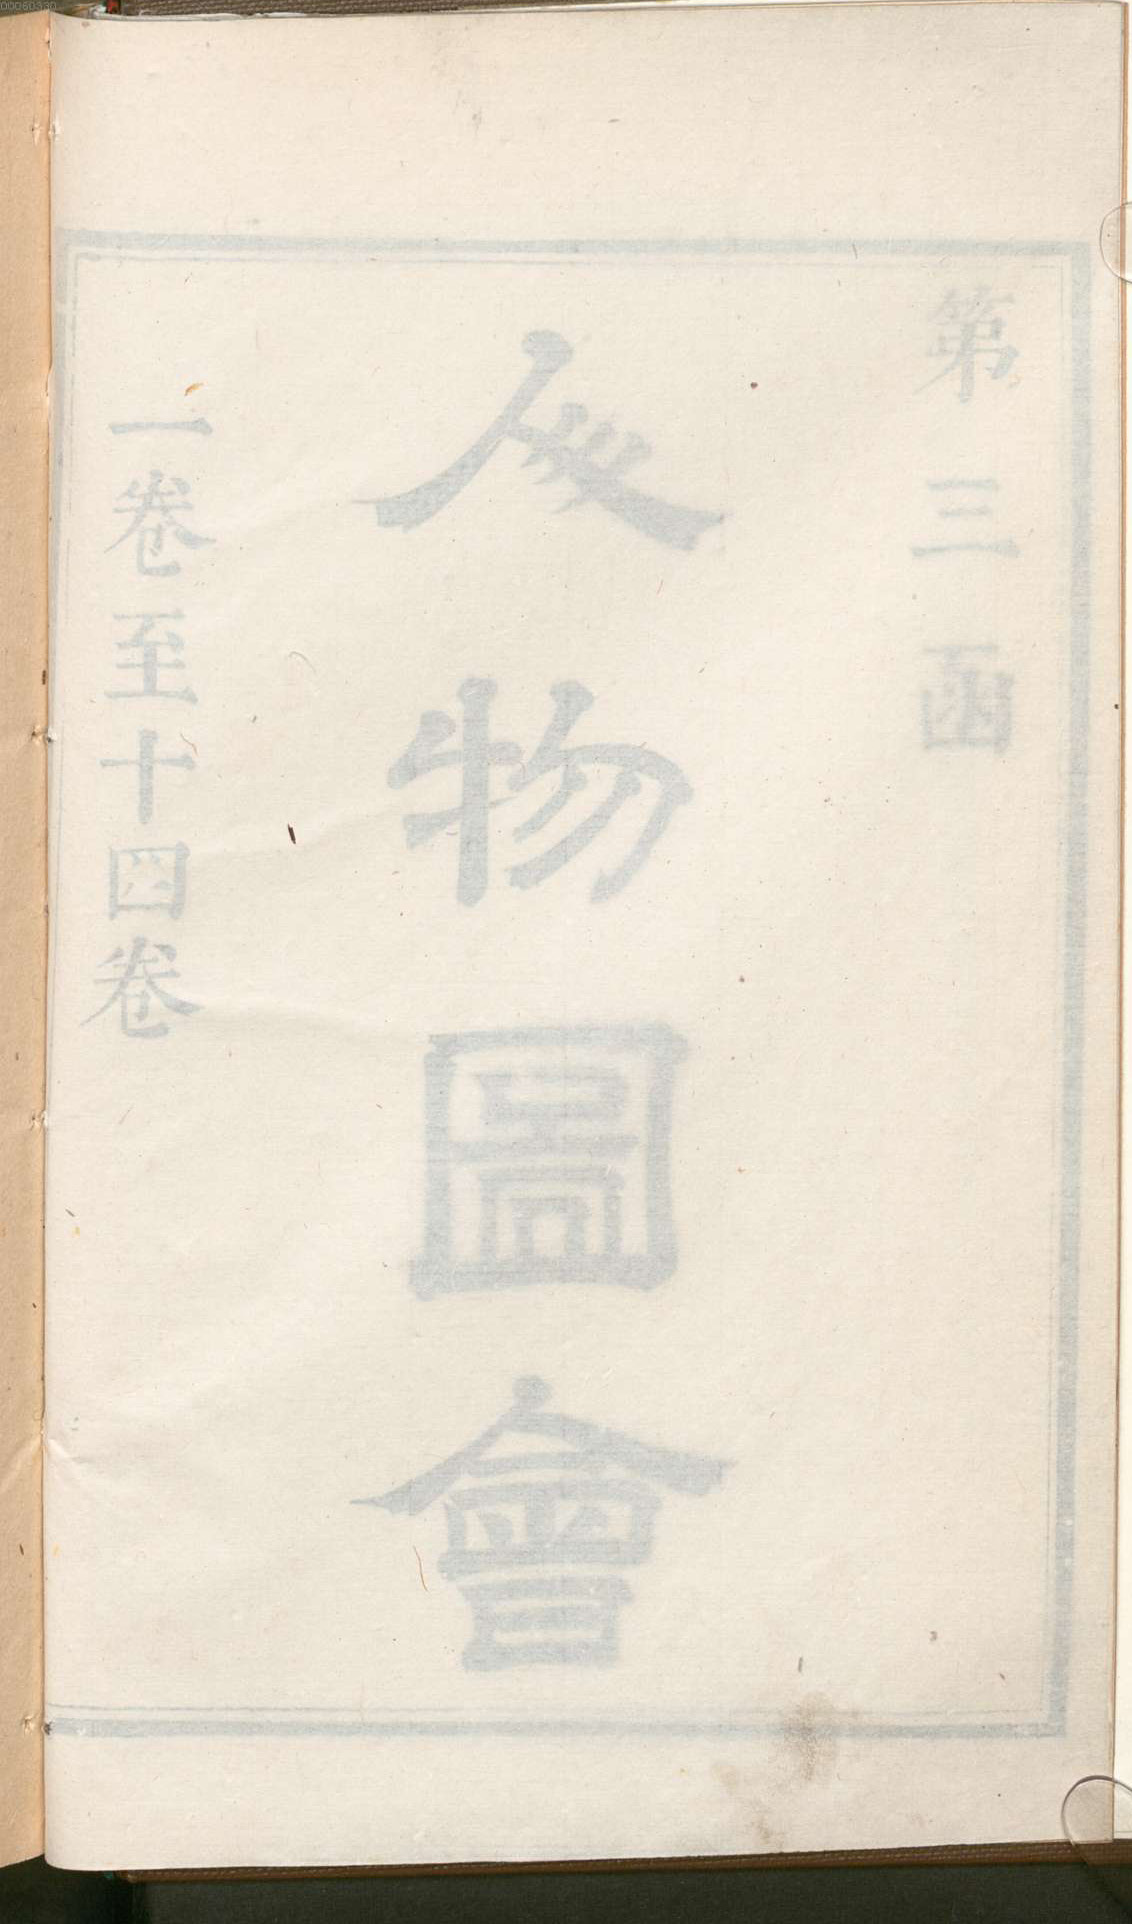 00060330
第三函
人物圖會
一卷至十四卷